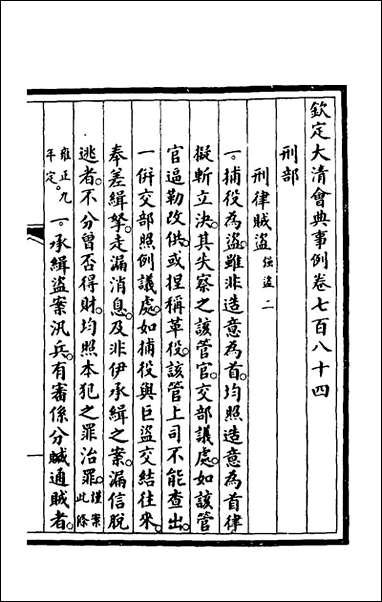 欽定大清會典事例卷七百八十四
刑部
刑律賊盜 強盜二
一。捕役為盜。雖非造意為首。均照造意為首律
擬斬立決。其失察之該管官。交部議處。如該管
官逼勒改供。或捏稱革役。該管上司不能查出。
一併交部照例議處。如捕役與巨盜交結往來。
奉差緝拏。走漏消息。及非伊承緝之案。漏信脫
逃者。不分曾否得財。均照本犯之罪治罪。謹案此條
雍正九年定。一。承緝盜案汛兵。有審係分贓通賊者。